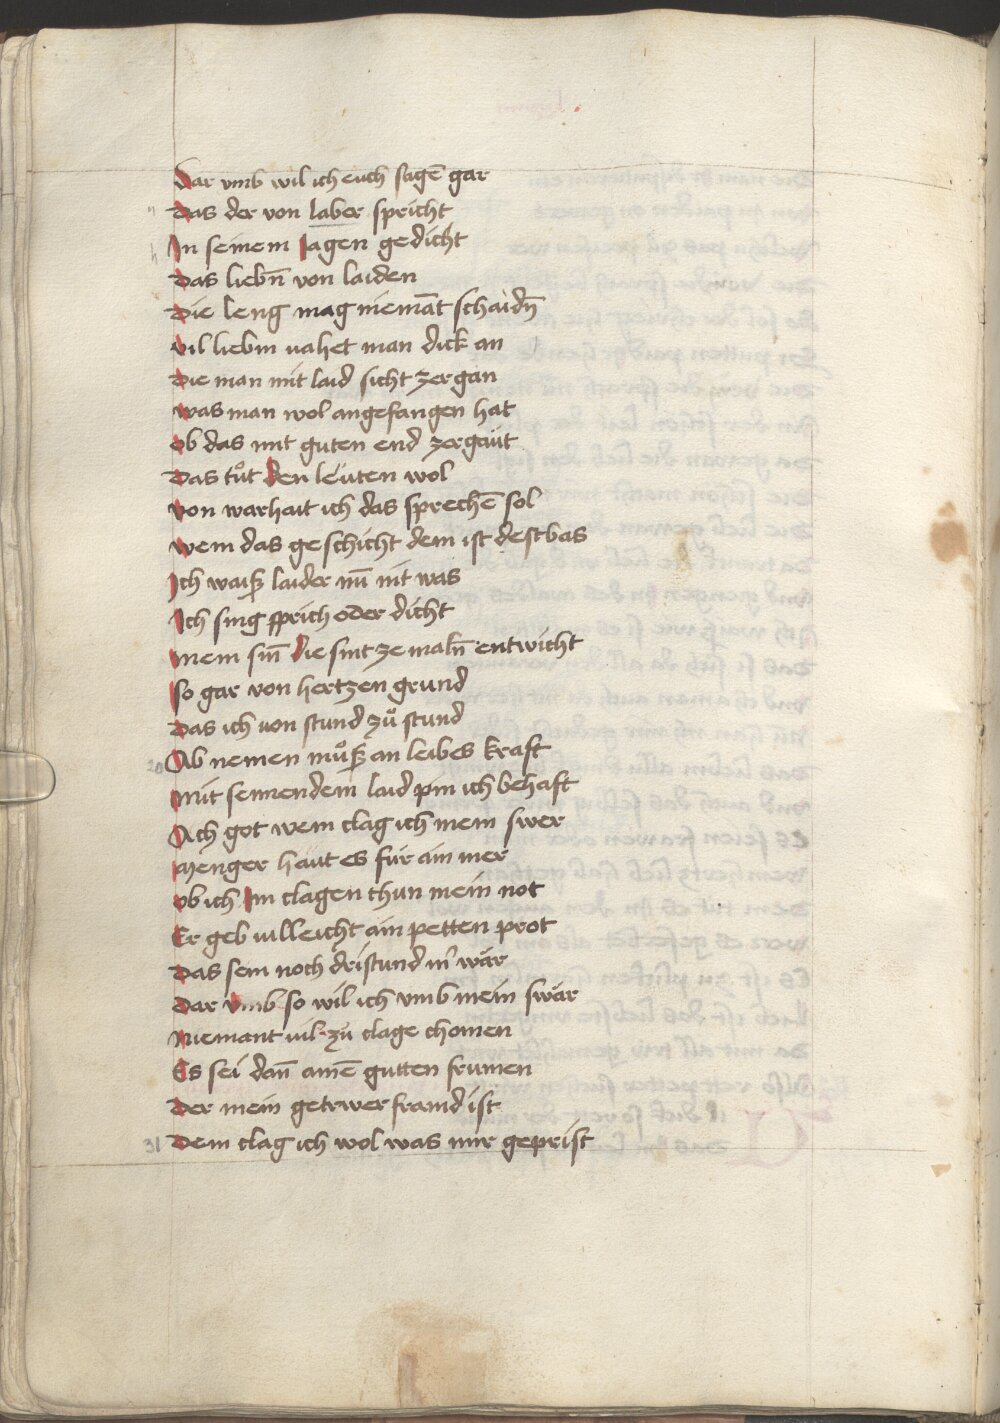 Dar vmb wil ich euch sagē gar
Das der von laber spricht
In seinem Jagen gedicht
Das liebn̄ von laiden
Die leng mag niemāt schaidn̄
vil liebm vahet man dick an
Die man mit laid sicht zergän
was man wol angefangen hat
ob das mit guten end zergäut
Das tůt den leüten wol
von warhait ich das sprechē sol
wem das geschicht dem ist destbas
Ich waiß laider nū nit was
Ich sing sprich oder dicht
mein sin̄ die sint ze maln̄ entwicht
so gar von hertzen grund
Das ich von stund zů stund
Ab nemen můß an leibes kraft
20
mit sennendem laid pin ich behaft
Ach got wem clag ich mein swer
menger haüt es für ain mer
ob ich Im clagen thun mein not
Er geb villeicht ain petten prot
Das sein noch dristund mr̄ wär
Dar vmb so wil ich vmb mein swär
Niemant vil zů clage chomen
Es sei dan̄ ainē gutten frumen
Der mein getrwer fraind ist
31 Dem clag ich wol was mir geprist